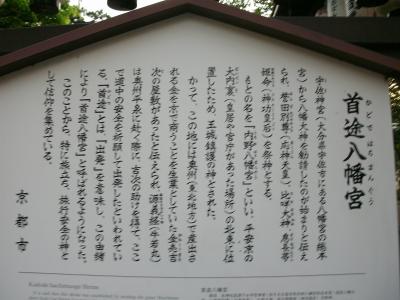 首途八幡宮
かどではちまんぐう
宇佐神宮（大分県宇佐市にある八幡宮の総本
宮）から八幡大神を勧請したのが始まりと伝え
られ、誉田別尊（応神天皇）、比咩大神、息長帯
姫命（神功皇后）を祭神とする。
もとの名を「内野八幡宮」といい、平安京の
大内裏（皇居や官庁があった場所）の北東に位
置したため、王城鎮護の神とされた。
かつて、この地には奥州（東北地方）で産出さ
れる金を京で商うことを生業としていた金売吉
次の屋敷があったと伝えられ、源義経（牛若丸）
は奥州平泉に赴く際に、吉次の助けを得て、ここ
で道中の安全を祈願して出発したといわれてい
る。「首途」とは、「出発」を意味し、この由緒
により「首途八幡宮」と呼ばれるようになった。
このことから、特に旅立ち、旅行安全の神と
して信仰を集めている。
京都市
Kadode Hachimangu Shrine
首途八幡宮